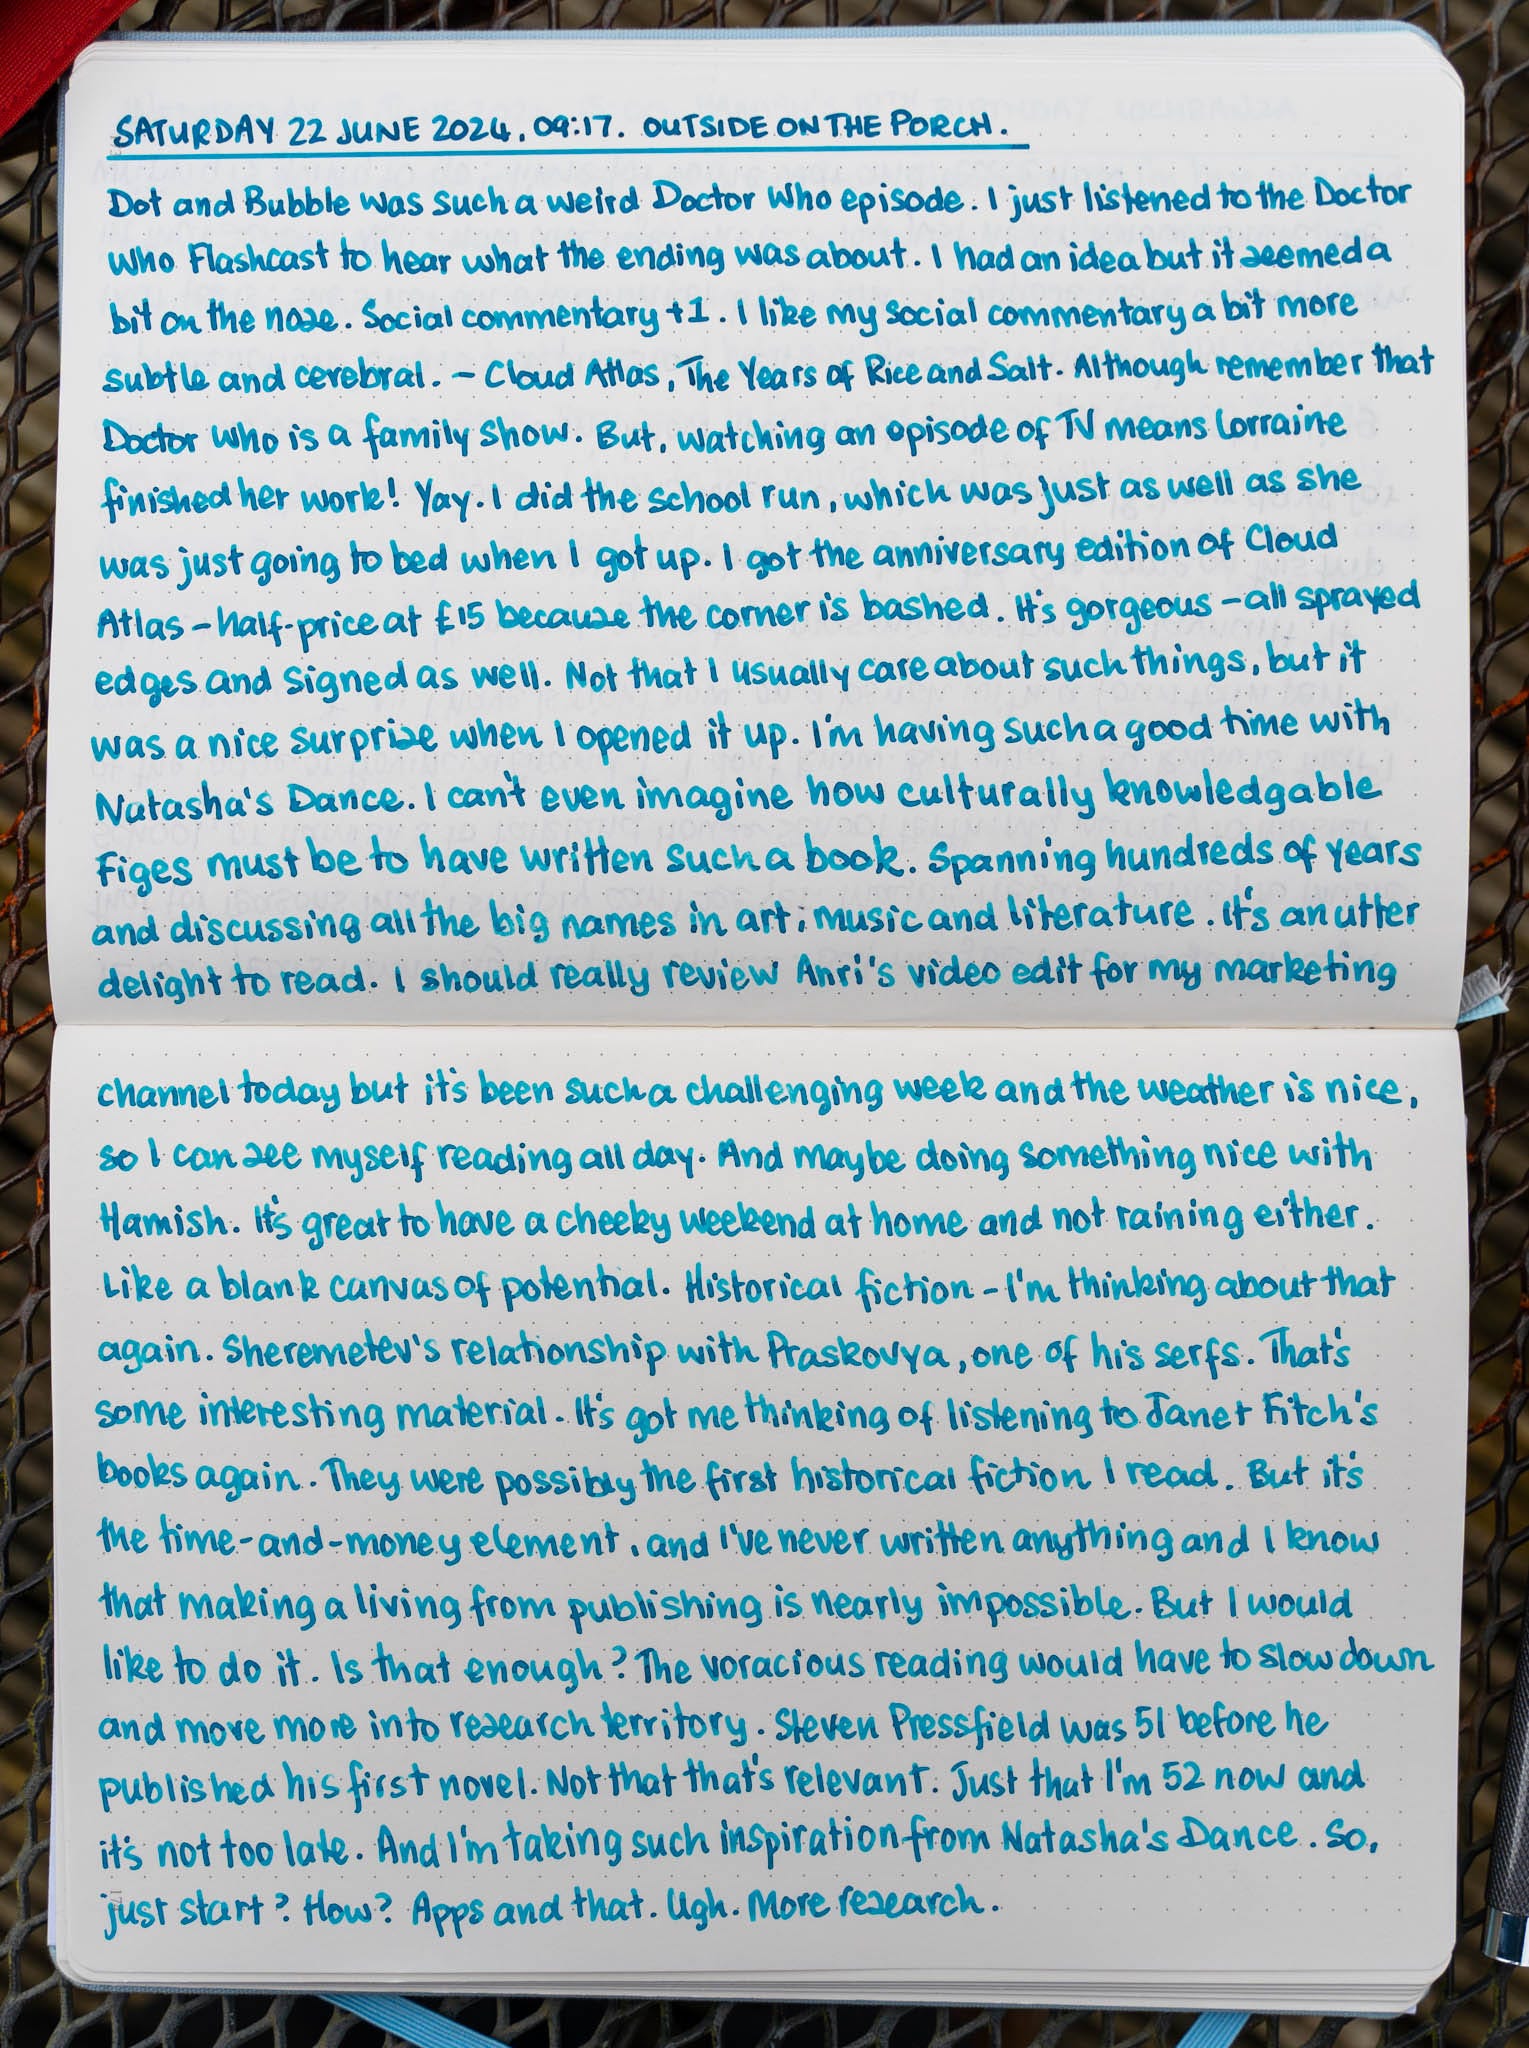 SATURDAY 22 JUNE 2024, 09:17. OUTSIDE ON THE PORCH.
Dot and Bubble was such a weird Doctor Who episode. I just listened to the Doctor
Who Flashcast to hear what the ending was about. I had an idea but it seemed a
bit on the nose. Social commentary +1. I like my social commentary a bit more
subtle and cerebral. - Cloud Atlas, The Years of Rice and Salt. Although remember that
Doctor Who is a family show. But, watching an episode of TV means Lorraine
finished her work! Yay. I did the school run, which was just as well as she
was just going to bed when I got up. I got the anniversary edition of Cloud
Atlas - half-price at £15 because the corner is bashed. It's gorgeous - all sprayed
edges and signed as well. Not that I usually care about such things, but it
was a nice surprise when I opened it up. I'm having such a good time with
Natasha's Dance. I can't even imagine how culturally knowledgable
Figes must be to have written such a book. Spanning hundreds of years
and discussing all the big names in art, music and literature. It's an utter
delight to read. I should really review Anri's video edit for my marketing
channel today but it's been such a challenging week and the weather is nice,
so I can see myself reading all day. And maybe doing something nice with
Hamish. It's great to have a cheeky weekend at home and not raining either.
Like a blank canvas of potential. Historical fiction - I'm thinking about that
again. Sheremetev's relationship with Praskovya, one of his serfs. That's
some interesting material. It's got me thinking of listening to Janet Fitch's
books again. They were possibly the first historical fiction I read. But it's
the time-and-money element, and I've never written anything and I know
that making a living from publishing is nearly impossible. But I would
like to do it. Is that enough? The voracious reading would have to slow down
and move more into research territory. Steven Pressfield was 51 before he
published his first novel. Not that that's relevant. Just that I'm 52 now and
it's not too late. And I'm taking such inspiration from Natasha's Dance. So,
just start? How? Apps and that. Ugh. More research.